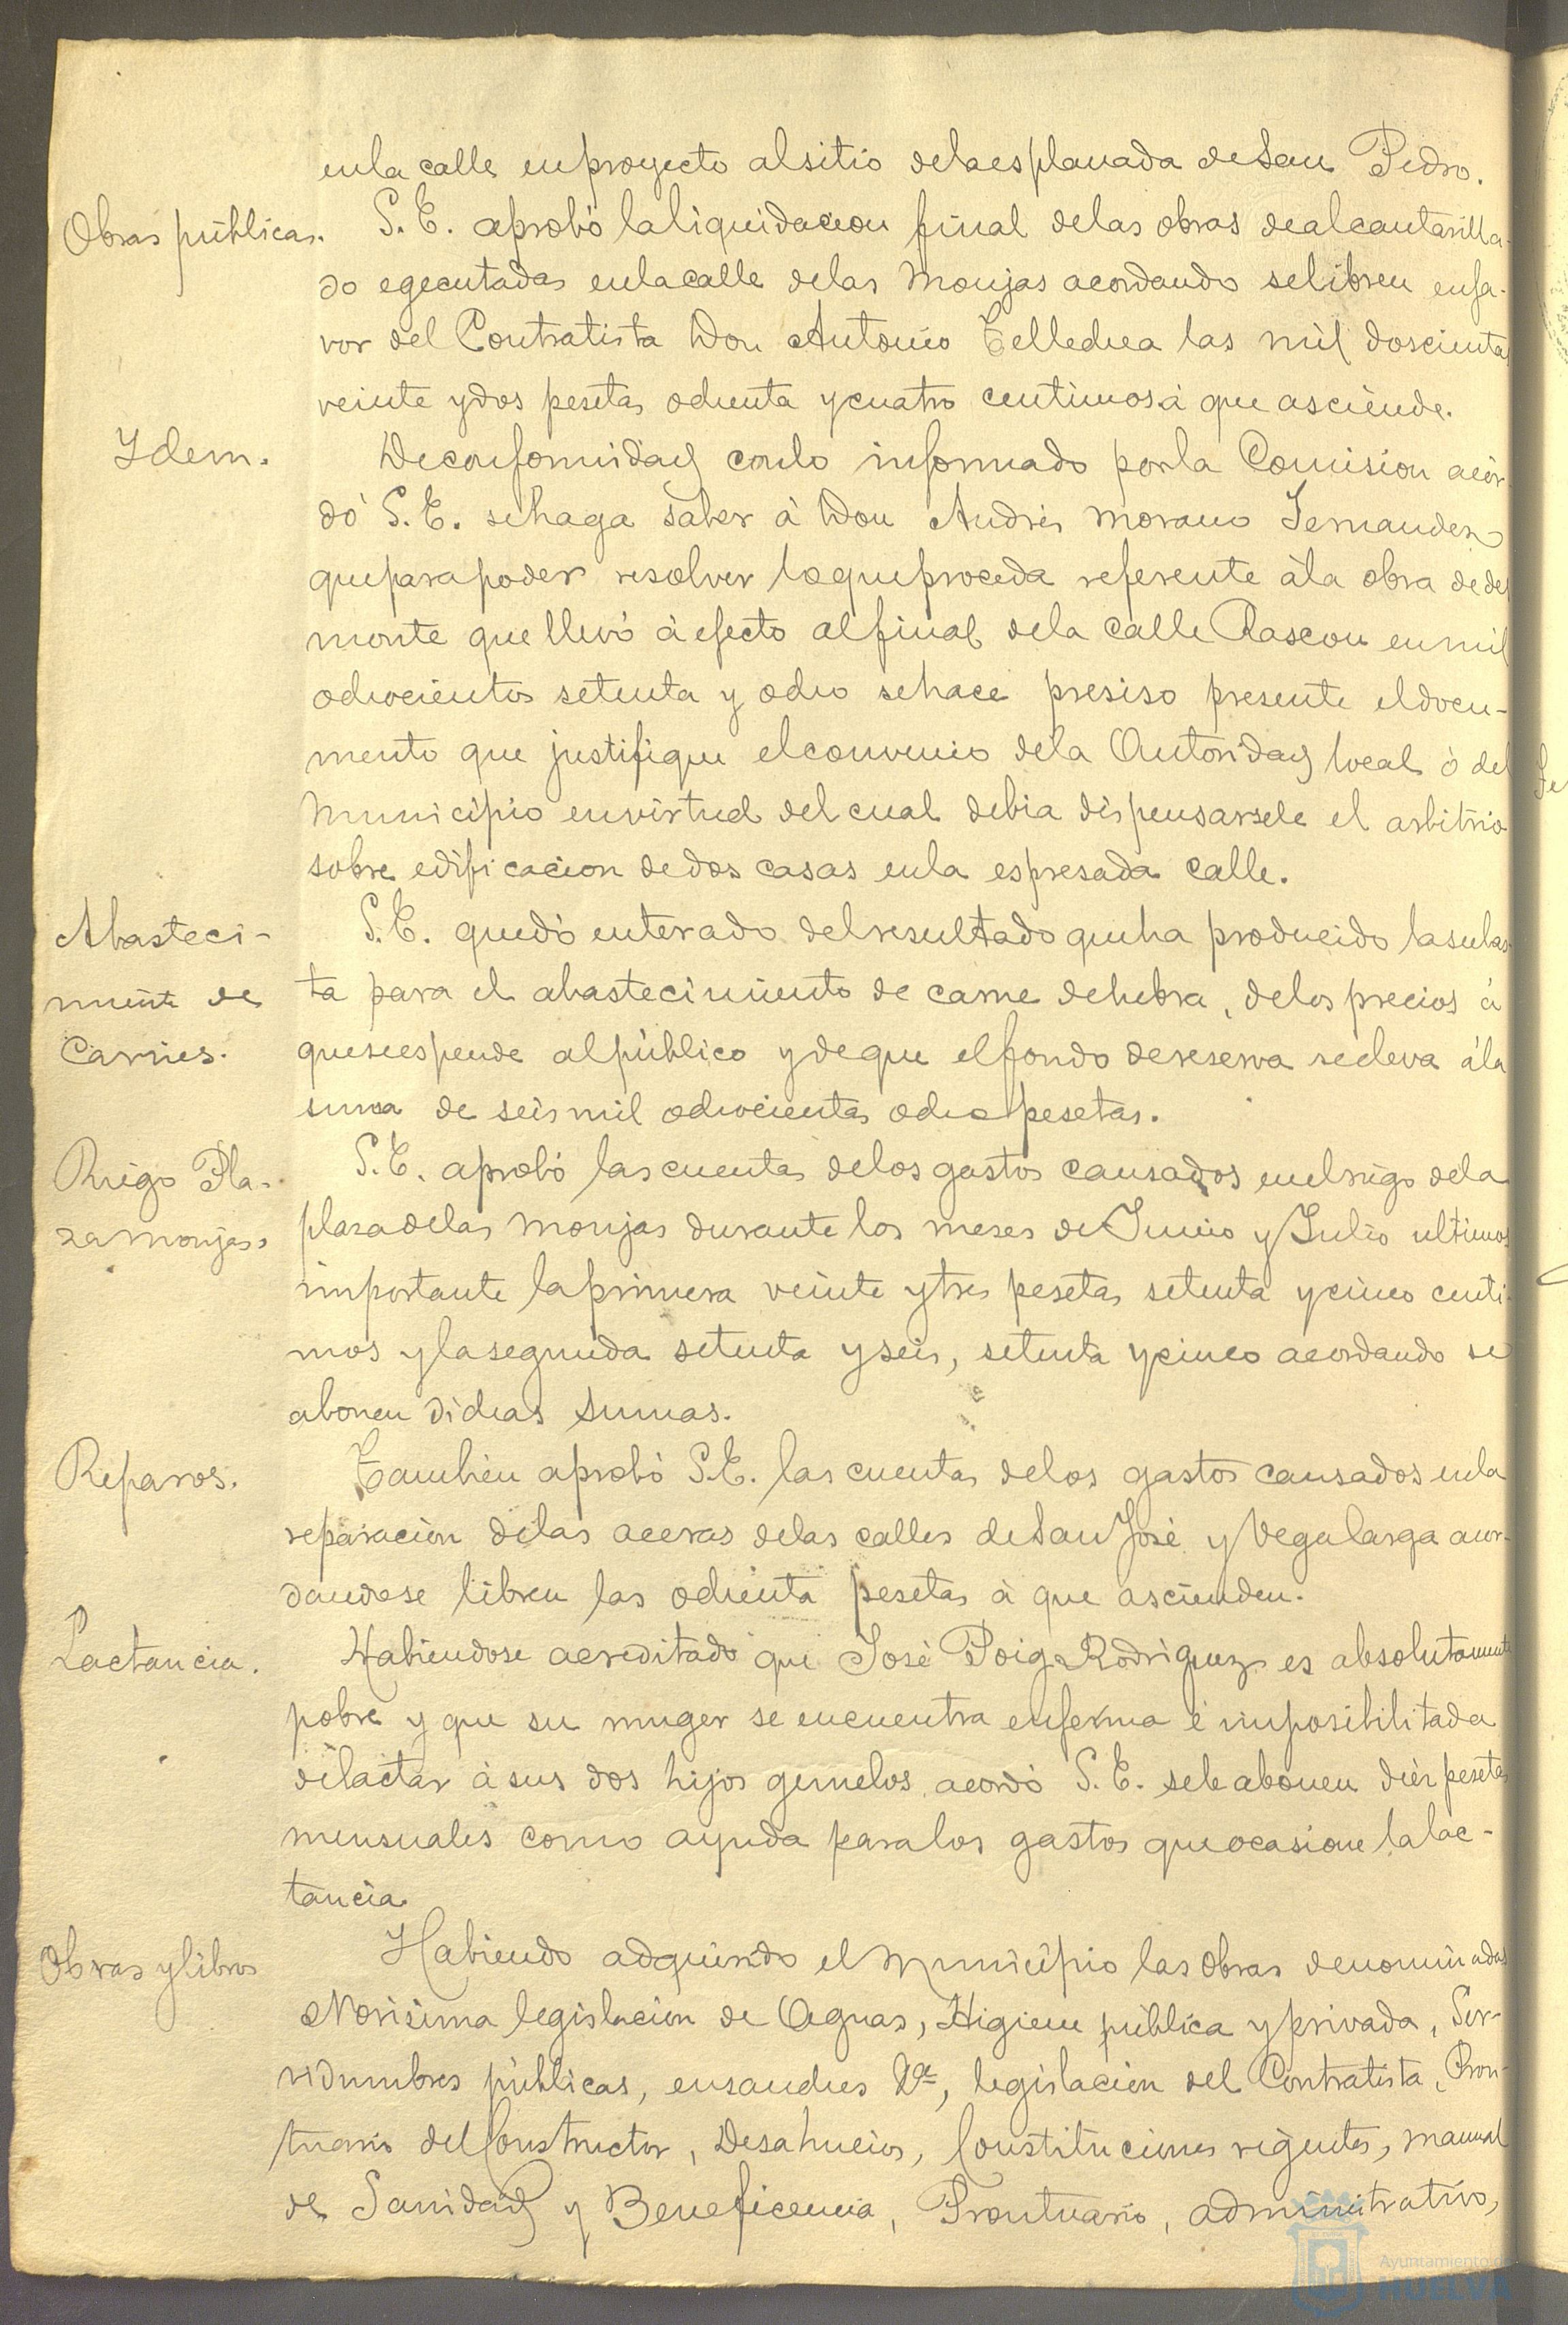 en la calle en proyecto al sitio de la esplanada de San Pedro.
Obras públicas. S. E. aprobó la liquidacion final de las obras de alcantarilla-
do egecutadas en la calle de las Monjas acordando se libren en fa-
vor del Contratista Don Antonio Tellechea las mil doscientas
veinte y dos pesetas ochenta y cuatro centimos á que asciende.
Ydem. De conformidad con lo informado por la Comision acor-
dó S. E. se haga saber á Don Andrés Morano Fernandez
que para poder resolver lo que proceda referente á la obra de des
monte que llevó á efecto al final de la calle Rascon en mil
ochocientos setenta y ocho se hace presiso presente el docu-
mento que justifique el convenio de la Autoridad local ó del
Municipio en virtud del cual debia dispensarsele el arbitrio
sobre edificacion de dos casas en la espresada calle.
Abasteci- S. E. quedó enterado del resultado que ha producido la subas
miento de ta para el abastecimiento de carne de hebra, de los precios á
Carnes. que se espende al público y de que el fondo de reserva se eleva á la
suma de seis mil ochocientas ocho pesetas.
Riego Pla- S. E. aprobó las cuentas de los gastos causados en el riego de la
za Monjas. plaza de las Monjas durante los meses de Junio y Julio ultimos
importante la primera veinte y tres pesetas setenta y cinco centi-
mos y la segunda setenta y seis, setenta y cinco acordando se
abonen dichas sumas.
Reparos. Tambien aprobó S. E. las cuentas de los gastos causados en la
reparacion de las aceras de las calles de San José y Vega larga acor-
dandose libren las ochenta pesetas á que ascienden.
Lactancia. Habiendose acreditado que José Poig Rodriguez es absolutamente
pobre y que su muger se encuentra enferma é imposibilitada
de lactar á sus dos hijos gemelos, acordó S. E. se le abonen diez pesetas
mensuales como ayuda para los gastos que ocasione la lac-
tancia.
Obras y libros Habiendo adquirido el Municipio las obras denominadas
Novisima legislacion de Aguas, Higiene pública y privada, Ser-
vidumbres públicas, ensanches &ª, legislacion del Contratista, Pron-
tuario del Constructor, Desahucios, Constituciones vigentes, Manual
de Sanidad y Beneficencia, Prontuario, administrativo,
Ayuntamiento de
HUELVA